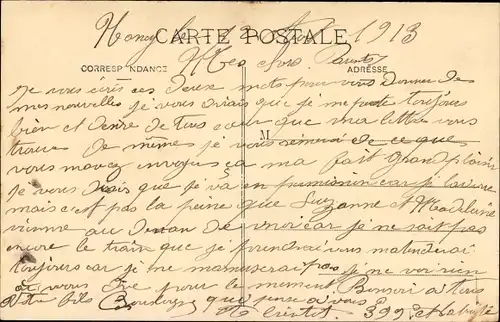 Nancy le 12 1913
CARTE POSTALE
CORRESPONDANCE
ADRESSE
Mes chers Parents
Je vous écris ces deux mots pour vous donner de
mes nouvelles je vous dirais que je me porte toujours
bien et désire de tous cœur que ma lettre vous
M
trouve de même je vous remerci de ce que
vous mavez envoyus ça ma fait grand plaisir
je vous dirais que je va en permission car je
mais c'est pas la peine que Suzanne et Madeleine
vienne au devan de moi car je ne sait pas
encore le train que je prendrai vous matenderai
toujours car je me pas je ne voi rien
a vous dire pour le moment Bonsoir a tous
Votre fils qui pense a vous
399